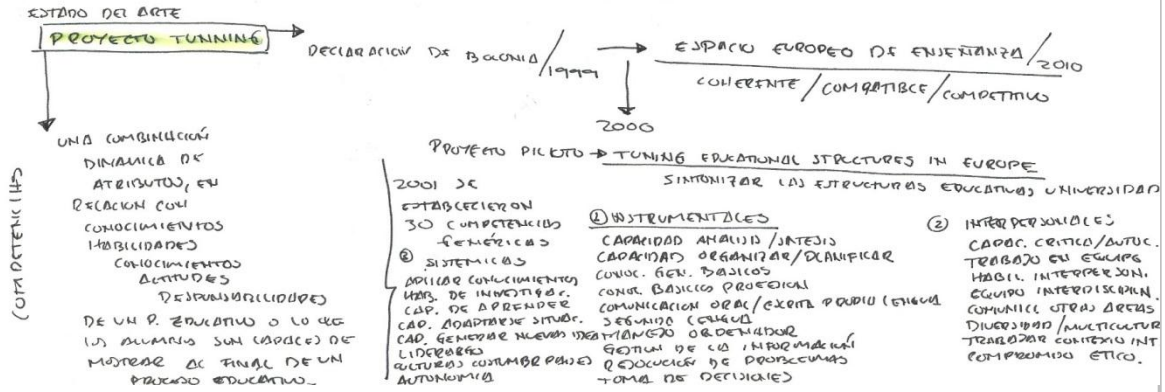 ESTADO DEL ARTE
PROYECTO TUNNING
DECLARACIÓN DE BOLONIA/1999
ESPACIO EUROPEO DE ENSEÑANZA/2010
COHERENTE/COMPATIBLE/COMPETITIVO
2000
PROYECTO PILOTO → TUNING EDUCATIONAL STRUCTURES IN EUROPE
SINTONIZAR LAS ESTRUCTURAS EDUCATIVAS UNIVERSIDAD
COMPETENCIAS
UNA COMBINACIÓN
DINAMICA DE
ATRIBUTOS, EN
RELACION CON
CONOCIMIENTOS
HABILIDADES
CONOCIMIENTOS
ACTITUDES
RESPONSABILIDADES
DE UN P. EDUCATIVO O LO QUE
LOS ALUMNOS SON CAPACES DE
MOSTRAR AL FINAL DE UN
PROCESO EDUCATIVO.
2001 SE
ESTABLECIERON
30 COMPETENCIAS
GENÉRICAS
③ SISTEMICAS
APLICAR CONOCIMIENTOS
HAB. DE INVESTIGAC.
CAP. DE APRENDER
CAP. ADAPTARSE SITUAC.
CAP. GENERAR NUEVAS IDEAS
LIDERAZGO
CULTURAS COSTUMBRE PAISES
AUTONOMIA
① INSTRUMENTALES
CAPACIDAD ANALISIS/SINTESIS
CAPACIDAD ORGANIZAR/PLANIFICAR
CONOC. GEN. BASICOS
CONOC. BASICOS PROFESION
COMUNICACION ORAL/ESCRITA PROPIO LENGUA
SEGUNDA LENGUA
MANEJO ORDENADOR
GESTION DE LA INFORMACIÓN
RESOLUCIÓN DE PROBLEMAS
TOMA DE DECISIONES
② INTERPERSONALES
CAPAC. CRITICA/AUTOC.
TRABAJO EN EQUIPO
HABIL. INTERPERSON.
EQUIPO INTERDISCIPLIN.
COMUNIC OTRAS AREAS
DIVERSIDAD/MULTICULTUR
TRABAJAR CONTEXTO INT
COMPROMISO ETICO.